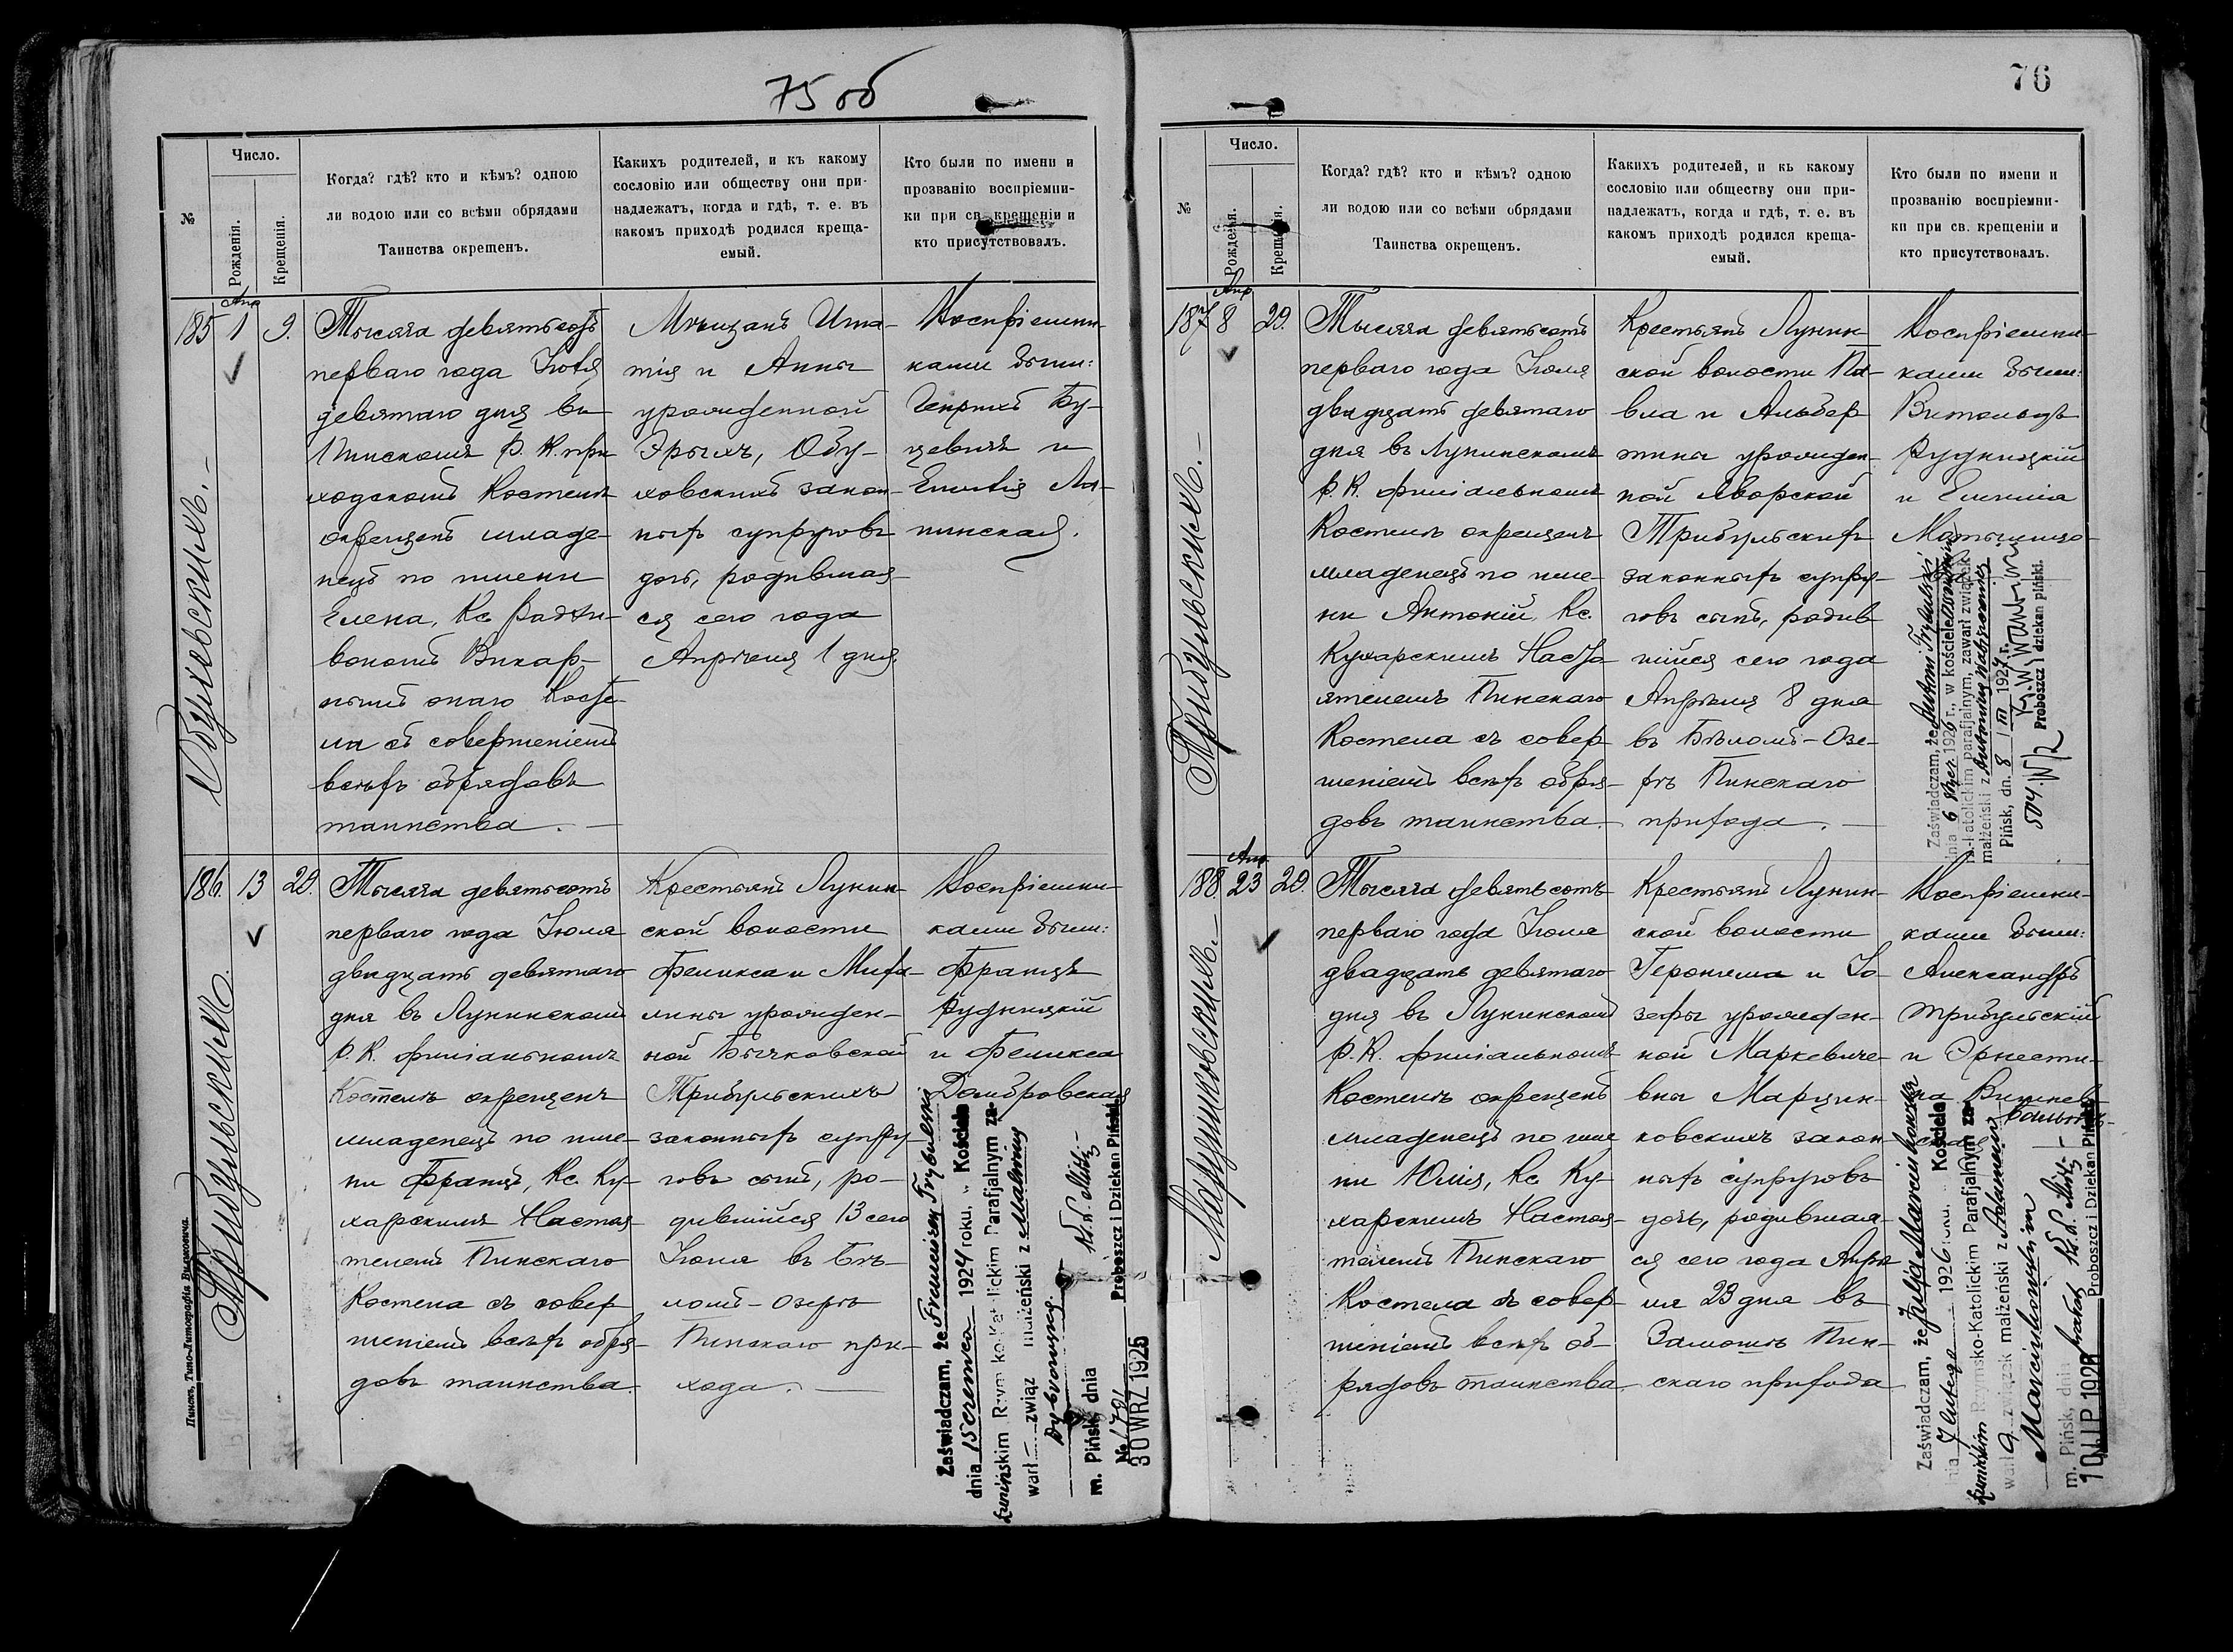 75 об
№
Число.
Рожденія.
Крещенія.
Когда? гдѣ? кто и кѣмъ? одною
ли водою или со всѣми обрядами
Таинства окрещенъ.
Какихъ родителей, и къ какому
сословію или обществу они при-
надлежатъ, когда и гдѣ, т. е. въ
какомъ приходѣ родился креща-
емый.
Кто были по имени и
прозванію воспріемни-
ки при св. крещеніи и
кто присутствовалъ.
185
Апр
1
9.
Тысяча девятьсотъ
перваго года Іюля
девятаго дня въ
Пинскомъ Р. К. при
ходскомъ Костелѣ
окрещенъ младе-
нецъ по имени
Елена, Кс.
вономъ Викар-
нымъ онаго Косте-
ла съ совершеніемъ
всѣхъ обрядовъ
таинства. —
Мѣщанъ Игна-
тія и Анны
урожденной
Обу-
ховскихъ закон-
ныхъ супруговъ
дочь, родившая-
ся сего года
Апрѣля 1 дня
Воспріемни-
ками были:
Генрихъ Бу-
цевичъ и
Емилія Ла-
пинская.
Обуховскихъ. —
186.
13
29.
Тысяча девятьсотъ
перваго года Іюля
двадцать девятаго
дня въ Лунинскомъ
Р. К. филіальномъ
Костелѣ окрещенъ
младенецъ по име-
ни Францъ, Кс. Ку-
харскимъ Настоя-
телемъ Пинскаго
Костела съ совер
шеніемъ всѣхъ обря-
довъ таинства.
Крестьянъ Лунин-
ской волости
Феликса и Миха-
лины урожден-
ной Бычковской
Трибульскихъ
законныхъ супру-
говъ сынъ, ро-
дившійся 13 сего
Іюля въ Бѣ-
ломъ-Озерѣ
Пинскаго при-
хода. —
Воспріемни-
ками были:
Францъ
Рудницкій
и Феликса
Домбровская
Трибульскихъ.
Zaświadczam, że Franciszek Trybulski
dnia 15 czerwca 1924 roku, w Kościele
Łunińskim Rzymsko-Katolickim Parafjalnym za-
warł — związ małżeński z Maliną
Dybowską
m. Pińsk, dnia
Proboszcz i Dziekan Piński
30 WRZ 1925
Пинскъ, Типо-Литографія Вилковича.
76
№
Число.
Рожденія.
Крещенія.
Когда? гдѣ? кто и кѣмъ? одною
ли водою или со всѣми обрядами
Таинства окрещенъ.
Какихъ родителей, и къ какому
сословію или обществу они при-
надлежатъ, когда и гдѣ, т. е. въ
какомъ приходѣ родился креща-
емый.
Кто были по имени и
прозванію воспріемни-
ки при св. крещеніи и
кто присутствовалъ.
187
Апр
8
29.
Тысяча девятьсотъ
перваго года Іюля
двадцать девятаго
дня въ Лунинскомъ
Р. К. филіальномъ
Костелѣ окрещенъ
младенецъ по име-
ни Антоній, Кс.
Кухарскимъ Насто-
ятелемъ Пинскаго
Костела съ совер
шеніемъ всѣхъ обря-
довъ таинства.
Крестьянъ Лунин-
ской волости Па-
вла и Альбер
тины урожден-
ной Яворской
Трибульскихъ
законныхъ супру-
говъ сынъ, родив
шійся сего года
Апрѣля 8 дня
въ Бѣломъ-Озе-
рѣ Пинскаго
прихода. —
Воспріемни-
ками были:
Витольдъ
Рудницкій
и Емилія
Трибульскихъ. —
Zaświadczam, że Antoni Trybulski
dnia 6 1926 r., w kościele
-katolickim parafjalnym, zawarł związek
małżeński z Antoniną
Pińsk, dn. 8 / III 1927 r.
Proboszcz i dziekan piński.
504.
188.
Апр.
23
29.
Тысяча девятьсотъ
перваго года Іюля
двадцать девятаго
дня въ Лунинскомъ
Р. К. филіальномъ
Костелѣ окрещенъ
младенецъ по име
ни Юлія, Кс. Ку-
харскимъ Настоя-
телемъ Пинскаго
Костела съ совер-
шеніемъ всѣхъ об-
рядовъ таинства.
Крестьянъ Лунин-
ской волости
Геронима и Іо-
зефы урожден-
ной Маркевиче-
вны Марцин-
ковскихъ закон-
ныхъ супруговъ
дочь, родившая-
ся сего года Апрѣ
ля 23 дня въ
Замошьѣ Пин-
скаго прихода
Воспріемни-
ками были:
Александръ
Трибульскій
и Эрнести-
на
Марцинковскихъ. —
Zaświadczam, że Julja Marcinkowska
dnia 7 lutego 1926 roku. w Kościele
Łunińskim Rzymsko-Katolickim Parafjalnym za-
warła związek małżeński z Adamem
Marcinkowskim
m. Pińsk, dnia
Proboszcz i Dziekan Piński
10 LIP 1926